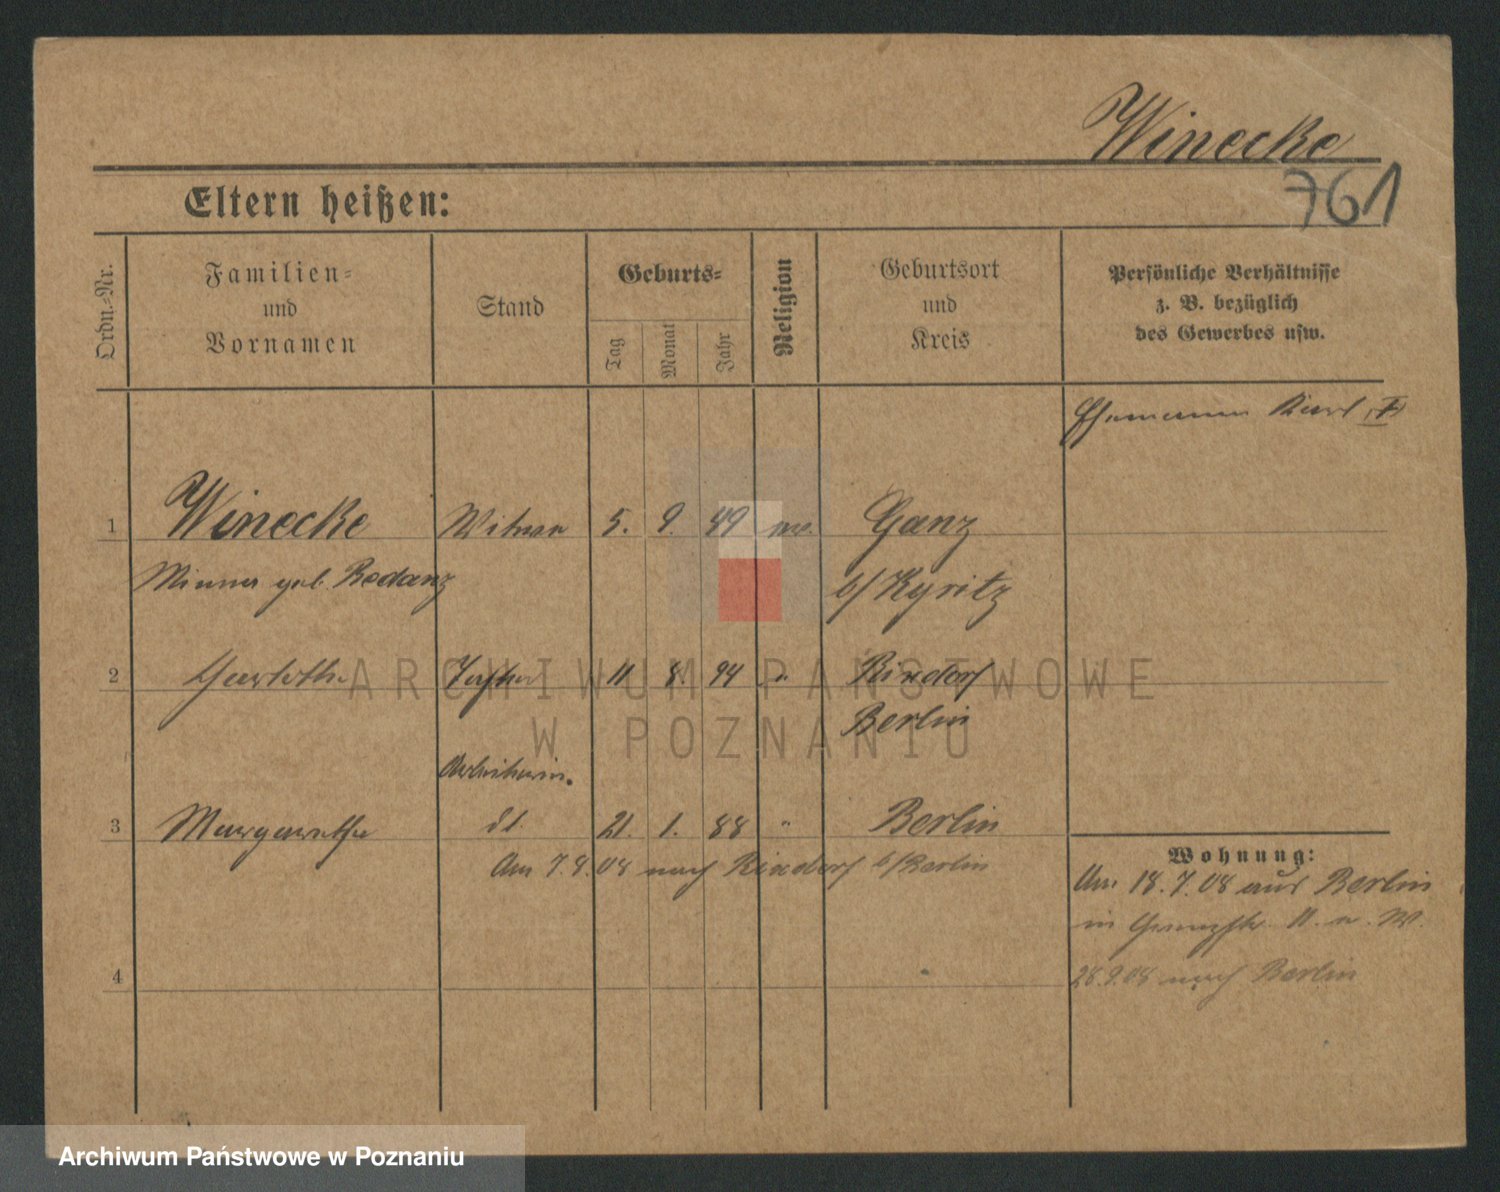 Winecke
761
Eltern heißen:
Ordn.-Nr.
Familien-
und
Vornamen
Stand
Geburts-
Tag
Monat
Jahr
Religion
Geburtsort
und
Kreis
Persönliche Verhältnisse
z. B. bezüglich
des Gewerbes usw.
Ehemann Karl
1 Winecke Witwe 5. 9. 49 ev. Ganz
Minna geb. Redanz b/Kyritz
2 Tochter 11. 8. 94 " Rixdorf
Berlin
Arbeiterin.
3 Margarethe dt. 21. 1. 88 " Berlin
Am 7.8.08 nach Rixdorf b/Berlin
Wohnung:
Am 18.7.08 aus Berlin
in 11. n. W.
28.9.08 nach Berlin
4
ARCHIWUM PAŃSTWOWE
W POZNANIU
Archiwum Państwowe w Poznaniu